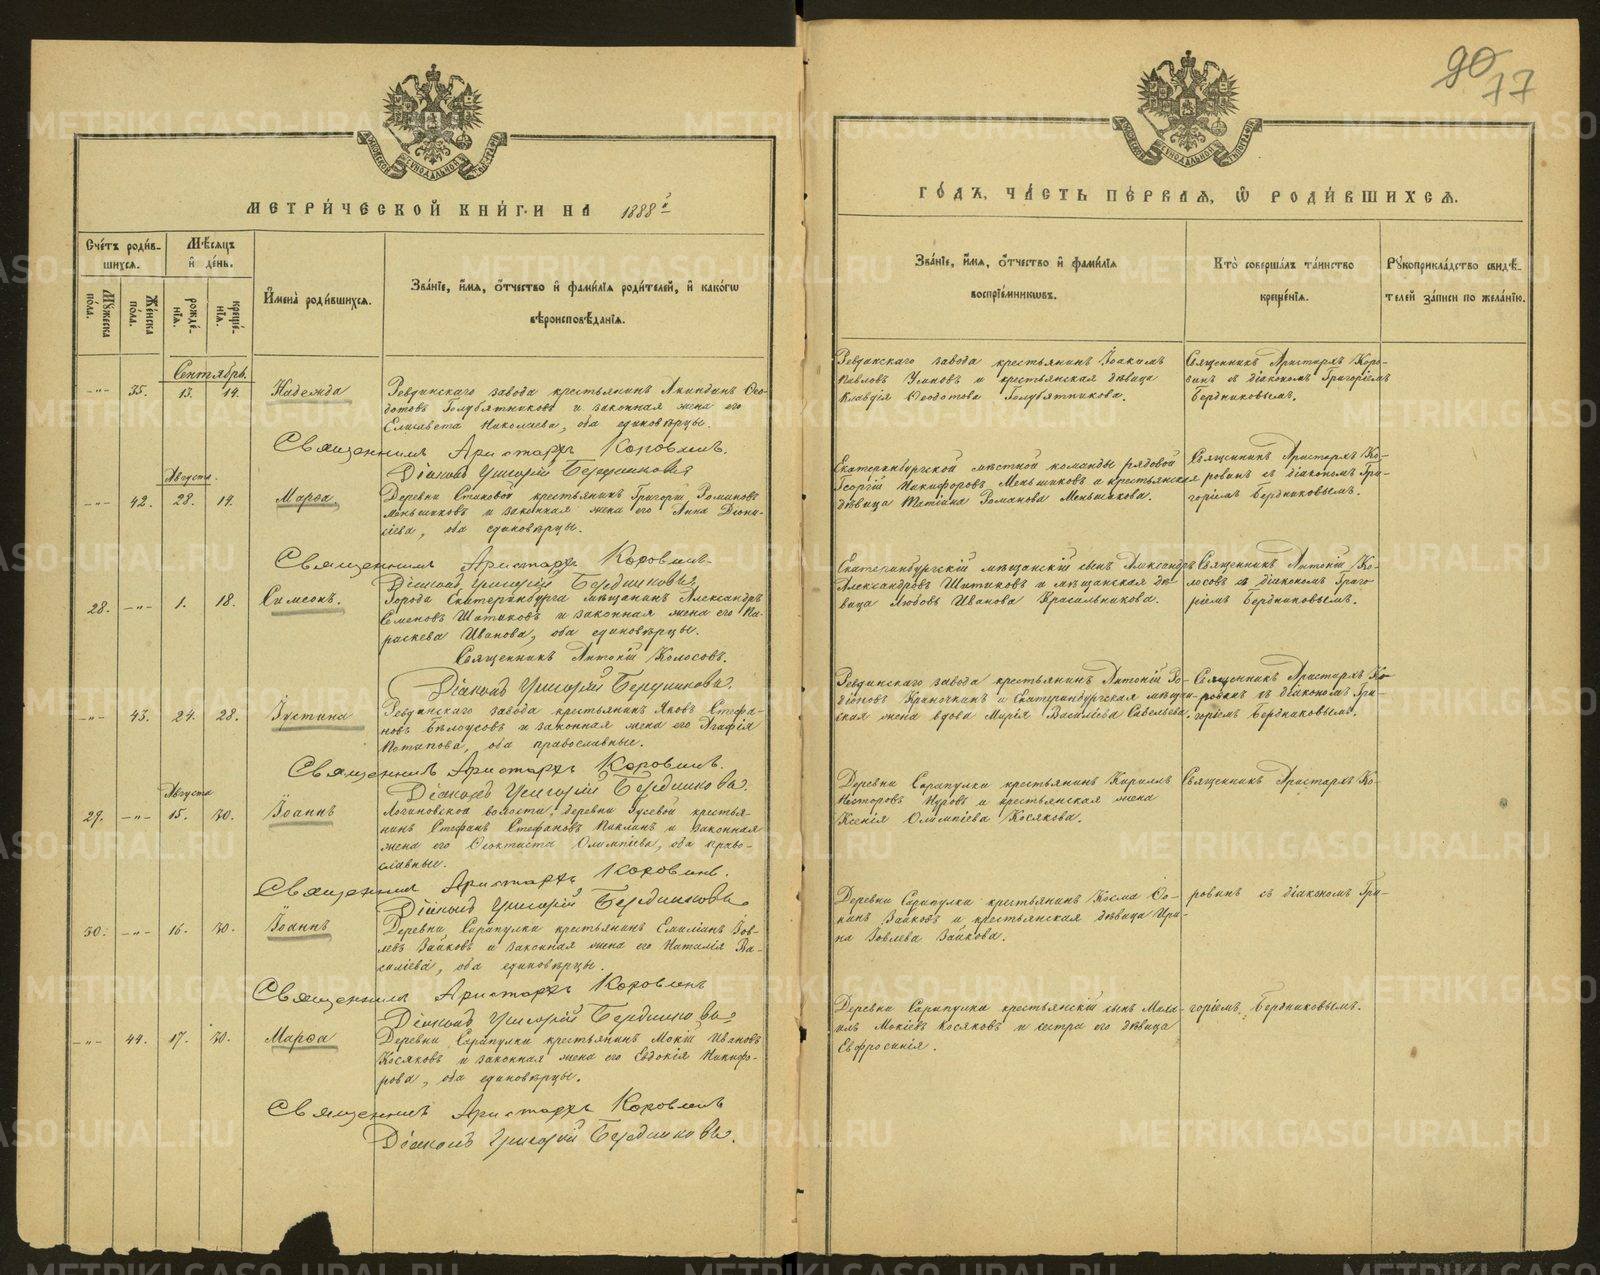 90
77
МЕТРИ́ЧЕСКОЙ КНИ́ГИ НА 1888й
ГО́ДЪ, ЧА́СТЬ ПЕ́РВАЯ, Ѡ РОДИ́ВШИХСЯ.
Сче́тъ роди́в-
шихся.
Мѣ́сяцъ
и де́нь.
Му́жеска
по́ла.
Же́нска
пола.
рожде́-
нія.
креще́-
нія.
Имена̀ роди́вшихся.
Зва́ніе, и́мя, о́тчество и фами́лія роди́телей, и како́гѡ
вѣроисповѣ́данія.
Зва́ніе, и́мя, о́тчество и фами́лія
воспріе́мниковъ.
Кто̀ соверша́лъ та́инство
креще́нія.
Рукоприкла́дство свидѣ́-
телей за́писи по жела́нію.
Сентябрь.
-"- 35. 13. 14. Надежда
Ревдинскаго завода крестьянинъ Акиндинъ Ѳео-
дотовъ Голубятниковъ и законная жена его
Елисавета Николаева, оба единовѣрцы.
Священникъ Аристархъ Коровинъ.
Діаконъ Григорій Бердниковъ
Ревдинскаго завода крестьянинъ Іоакимъ
Павловъ Умновъ и крестьянская дѣвица
Клавдія Ѳеодотова Голубятникова.
Священникъ Аристархъ Коро-
винъ съ діакономъ Григоріемъ
Бердниковымъ.
Августа.
-"- 42. 28. 14. Марѳа.
Деревни Становой крестьянинъ Григорій Романовъ
Меньшиковъ и законная жена его Анна Діони-
сіева, оба единовѣрцы.
Священникъ Аристархъ Коровинъ.
Діаконъ Григорій Бердниковъ
Екатеринбургской мѣстной команды рядовой
Георгій Никифоровъ Меньшиковъ и крестьянская
дѣвица Татіана Романова Меньшикова.
Священникъ Аристархъ Ко-
ровинъ съ діакономъ Гри-
горіемъ Бердниковымъ.
28. -"- 1. 18. Симеонъ.
Города Екатеринбурга мѣщанинъ Александръ
Семеновъ Шитиковъ и законная жена его Па-
раскева Иванова, оба единовѣрцы.
Священникъ Антоній Колосовъ.
Діаконъ Григорій Бердниковъ.
Екатеринбургскій мѣщанскій сынъ Александръ
Александровъ Шитиковъ и мѣщанская дѣ-
вица Любовь Иванова Красильникова.
Священникъ Антоній Ко-
лосовъ съ діакономъ Григо
ріемъ Бердниковымъ.
-"- 43. 24. 28. Іустина
Ревдинскаго завода крестьянинъ Яковъ Стефа-
новъ Бѣлоусовъ и законная жена его Агафія
Потапова, оба православные.
Священникъ Аристархъ Коровинъ.
Діаконъ Григорій Бердниковъ.
Ревдинскаго завода крестьянинъ Антоній Ро-
діоновъ Краночкинъ и Екатеринбургская мѣщан-
ская жена вдова Марія Василіева Савельева.
Священникъ Аристархъ Ко
ровинъ съ діакономъ Гри-
горіемъ Бердниковымъ.
Августа
29. -"- 15. 30. Іоаннъ
Логиновской волости, деревни Гусевой крестья-
нинъ Стефанъ Стефановъ Паклинъ и законная
жена его Ѳеоктиста Олимпіева, оба право-
славные.
Священникъ Аристархъ Коровинъ.
Діаконъ Григорій Бердниковъ
Деревни Сарапулки крестьянинъ Кириллъ
Несторовъ Пуровъ и крестьянская жена
Ксенія Олимпіева Косякова.
Священникъ Аристархъ Ко-
30. -"- 16. 30. Іоаннъ
Деревни Сарапулки крестьянинъ Емиліанъ Іов-
левъ Зайковъ и законная жена его Наталія Ва-
силіева, оба единовѣрцы.
Священникъ Аристархъ Коровинъ
Діаконъ Григорій Бердниковъ
Деревни Сарапулки крестьянинъ Косма Ѳо-
минъ Зайковъ и крестьянская дѣвица Ири-
на Іовлева Зайкова.
ровинъ съ діакономъ Гри-
-"- 44. 17. 30. Марѳа
Деревни Сарапулки крестьянинъ Мокій Ивановъ
Косяковъ и законная жена его Евдокія Никифо-
рова, оба единовѣрцы.
Священникъ Аристархъ Коровинъ
Діаконъ Григорій Бердниковъ.
Деревни Сарапулки крестьянскій сынъ Миха-
илъ Мокіевъ Косяковъ и сестра его дѣвица
Евфросинія.
горіемъ Бердниковымъ.